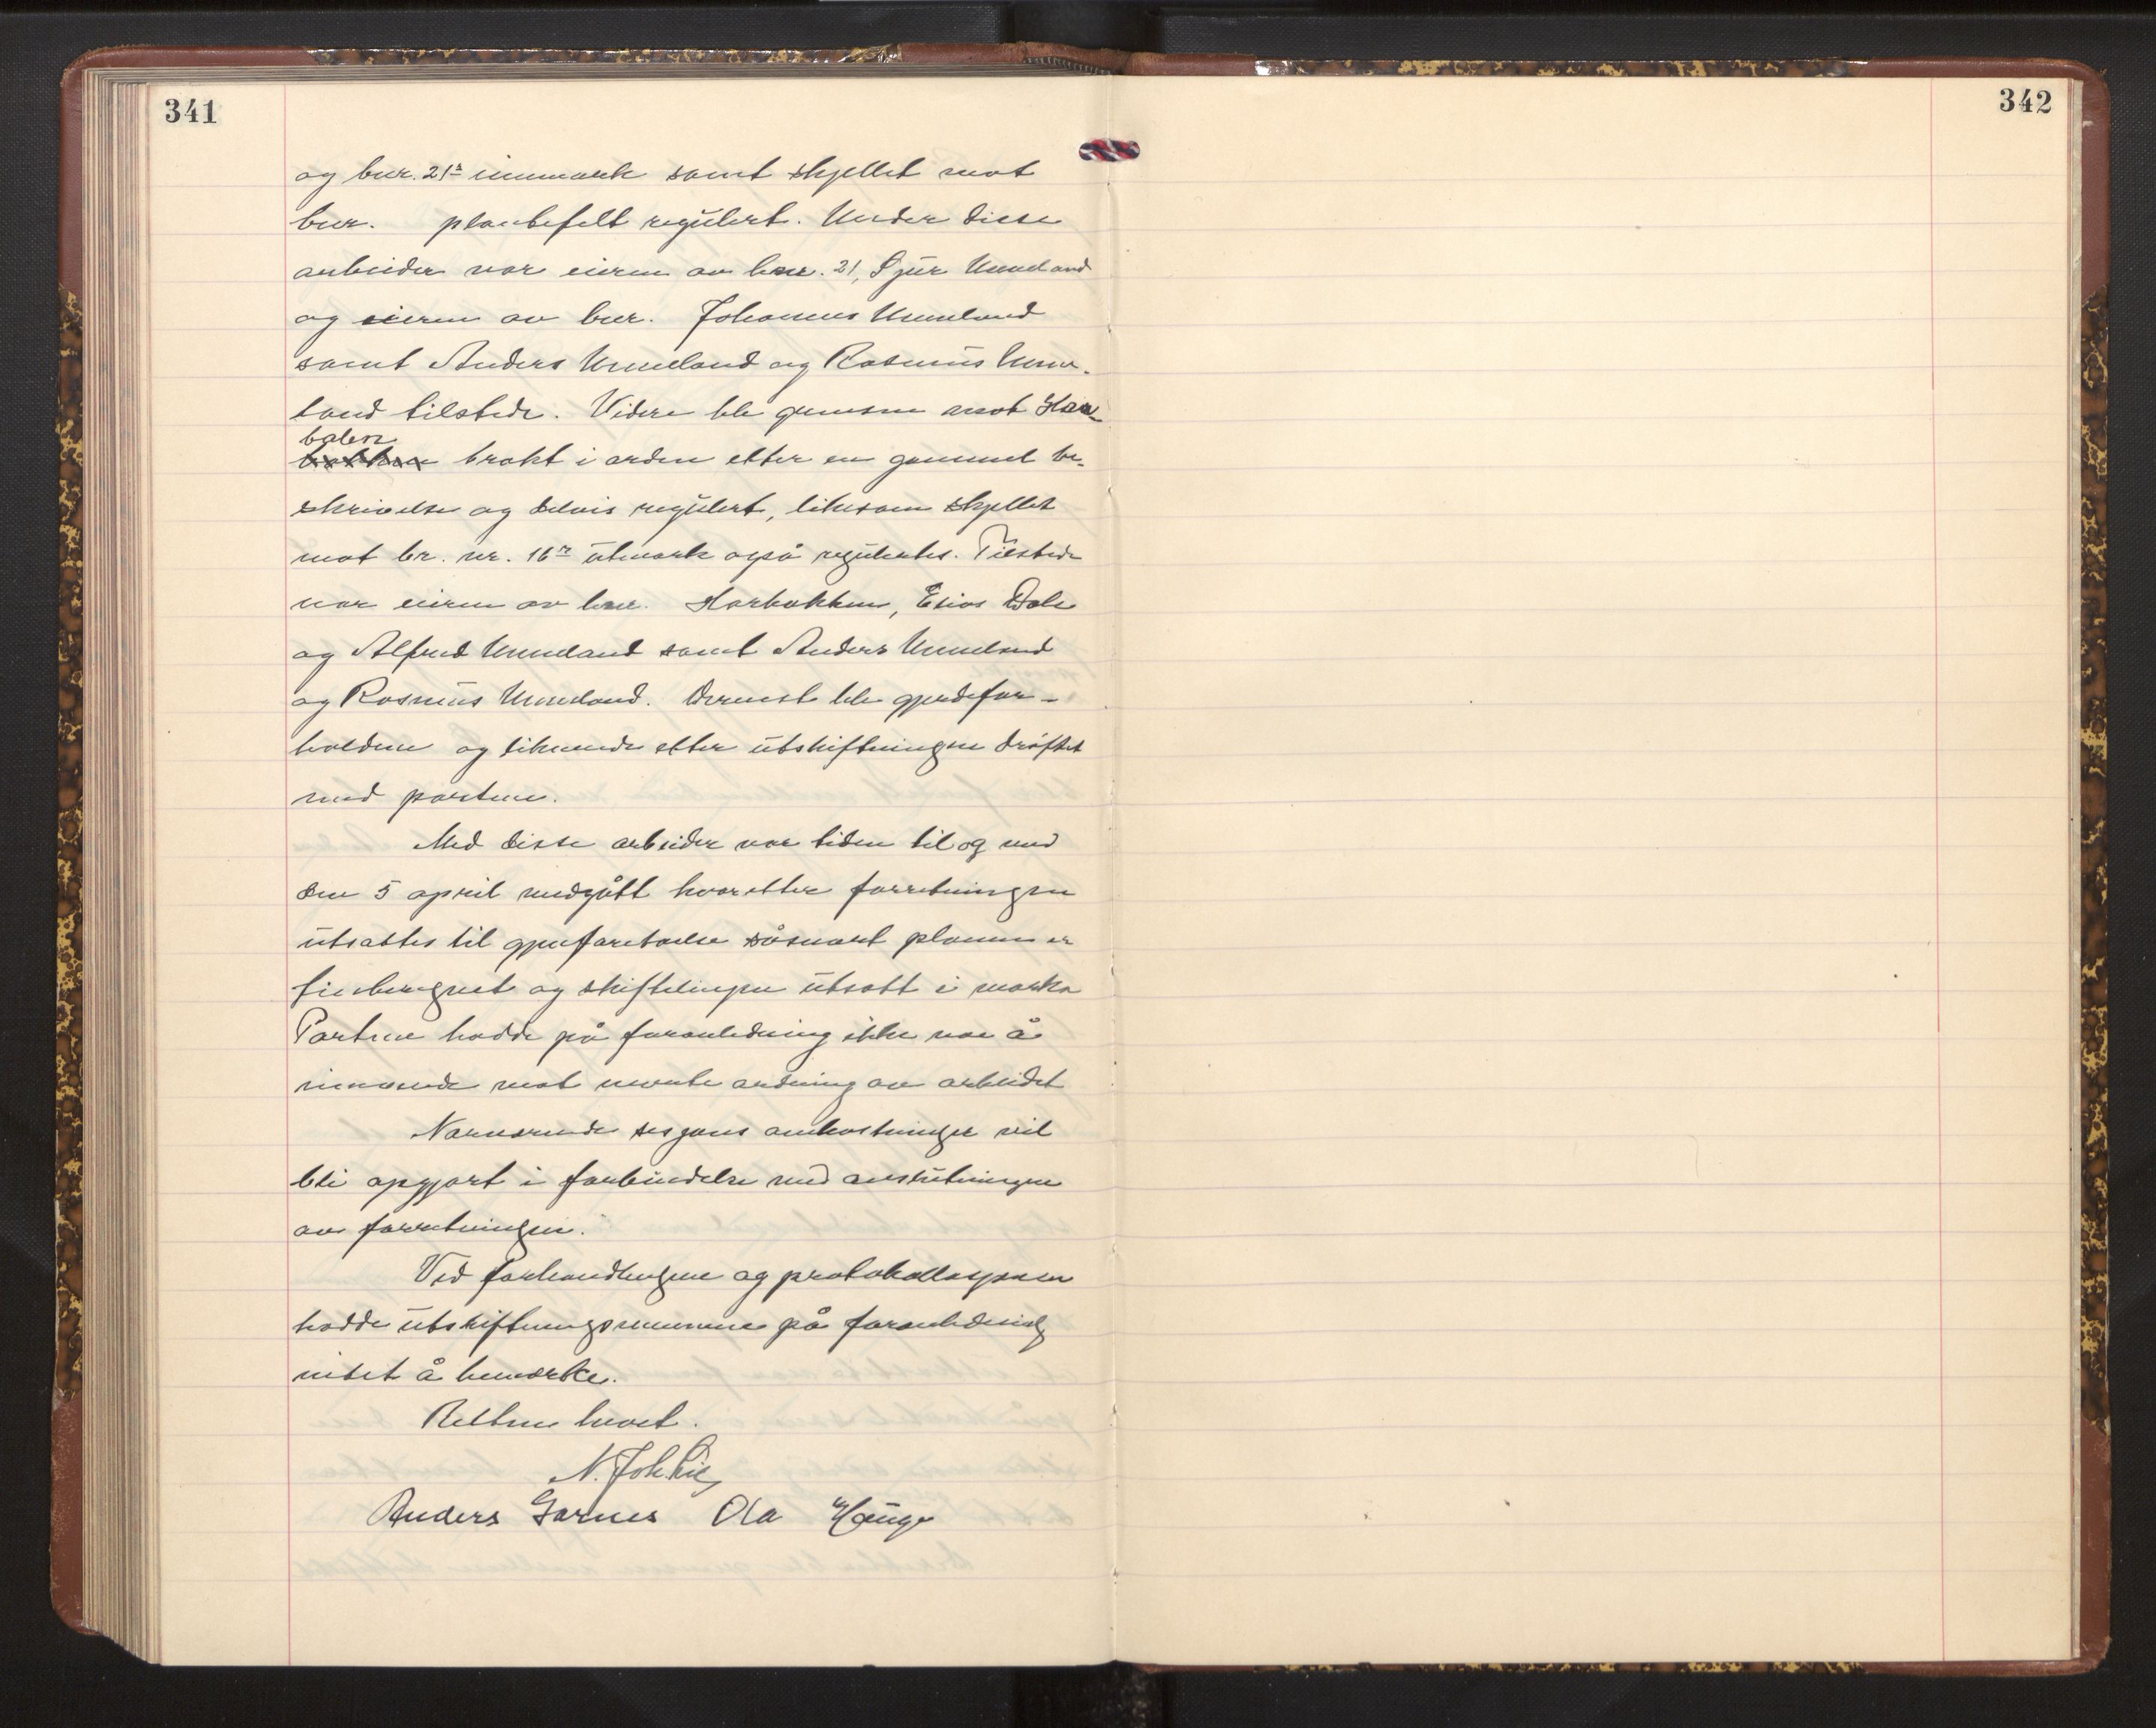 341
og bnr. 21s innmark samt skjellet mot
bnr. plantefelt regulert. Under disse
arbeider var eieren av bnr. 21, Sjur Unneland
og eieren av bnr. Johannes Unneland
samt Anders Unneland og Rasmus Unne-
land tilstede. Videre ble grensen mot Har
balen
brakt i orden etter en gammel be-
skrivelse og delvis regulert, likesom skjellet
mot br. nr. 16s utmark også regulertes. Tilstede
var eieren av bnr. Harbakken, Elias Dale
og Alfred Unneland samt Anders Unneland
og Rasmus Unneland. Dernest ble gjerdefor-
holdene og liknende etter utskiftningen drøftet
med partene.
Med disse arbeider var tiden til og med
den 5 april medgått hvoretter forretningen
utsattes til gjenforetaelse såsnart planen er
finberegnet og skiftelinjen utsatt i marka
Partene hadde på foranledning ikke noe å
innvende mot nevnte ordning av arbeidet
Nærværende sesjons omkostninger vil
bli opgjort i forbindelse med avslutningen
av forretningen.
Ved forhandlingene og protokollasjonen
hadde utskiftningsmennene på foranledning
intet å bemerke.
Retten hevet.
N. Joh. Lie
Anders Garnes Ola Hauge
342